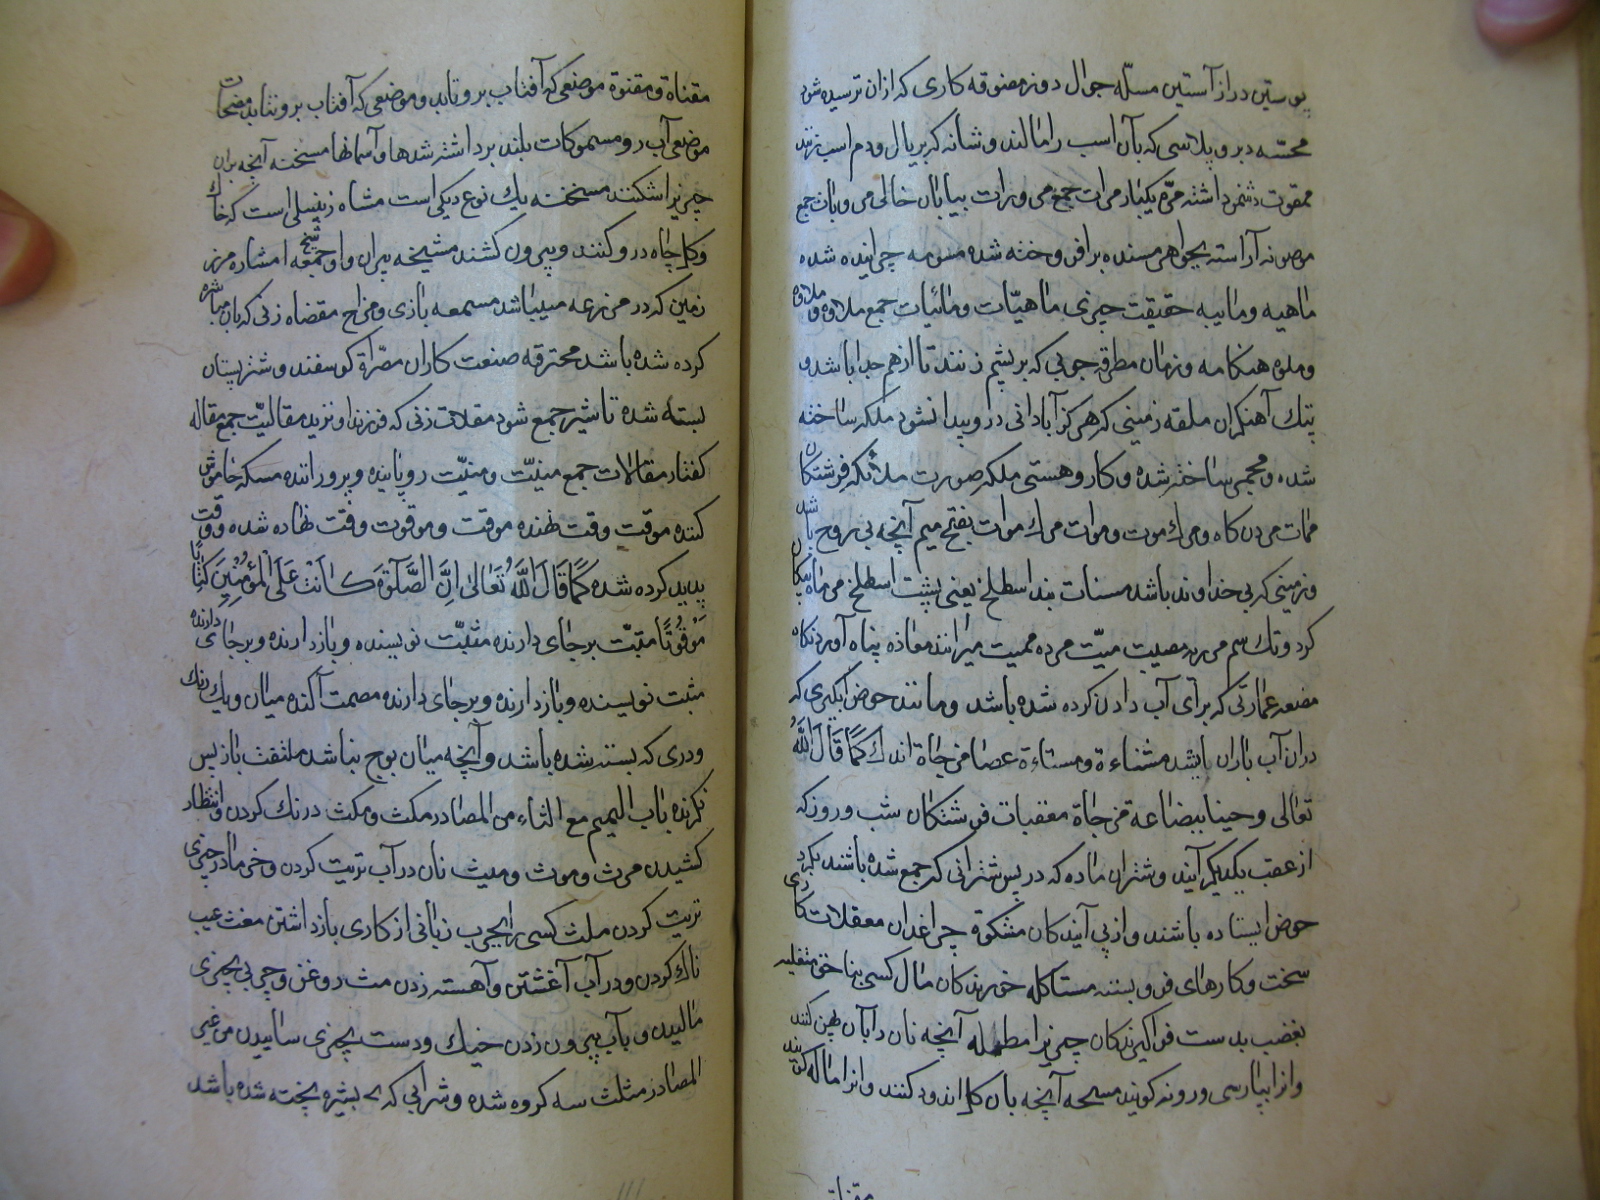 پوستین دراز آستین مسئله جوال دوز مصنوقه کاری که ازان ترسیده شود
محسّه دبر و پلاسی که بآن اسب را مالند و شانه که بر یال و دم اسب زنند
ممقوت دشمن داشته مرّه یکبار مرات جمع می ورات بیابان خالی می ویات جمع
موصونه آراسته بجواهر مسنده برافروخته شده مسومه چرانیده شده
ماهیه و مائیه حقیقت چیزی ماهیّات و مائیات جمع ملاوه و ملاوه
وملوه هنکامه و زمان مطرقه چوبی که بر پشم زنند تا از هم جدا باشد و
پتك آهنکران ملقه زمینی که هرکز آبادانی درو پیدا نشود ملکه ساخته
شده و محمی ساخته شده و کار و هستی ملکه صورت ملائکه فرشتکان
ممات مردن کاه و مرك موت و موات مرك موات بفتح میم آنچه بی روح باشد
و زمینی که بی خداوند باشد مسنات بند اسطلخ یعنی پشت اسطلخ مرماه پیکان
کرد و تك سم می رند مصیبت میّت مرده ممیت میراننده معاذه پناه آوردنکاه
مصنعه عمارتی که برای آب دادن کرده شده باشد و مانند حوض آبکیری که
دران آب باران باشد مشناءة ومستاءة عصا مزجاة اندك کَمَا قَالَ اللّٰهُ
تعالی وجینا ببضاعة مزجاة معقبات فرشتکان شب و روز که
از عقب یکدیکر آیند و شتران ماده که در پس شترانی که جمع شده باشند بکرد
حوض ایستاده باشند و از پی آیندکان مشکوة چراغدان معقلات کارهای
سخت و کارهای فروبسته مستاکله خورندکان مال کسی بناحق متقلبه
بغضب بدست فراکیرندکان چیزیرا مطمله آنچه نان را بآن پهن کنند
وانرا بپارسی وردنه کویند مسیحه آنچه بآن کل اندود کنند وانرا ماله کویند
مقناة
مقناة و مقنوة موضعی که آفتاب برو تابد و موضعی که آفتاب برو نتابد مضحات
موضعی آب رو ومسموکات بلند برداشته شدها و آسمانها مسخنه آنچه بران
چیزیرا شکنند مسخنه یك نوع دیکی است مشاه زنپیلی است که خاك
وکل چاه درو کنند و بیرون کشند مشیخه پیران واو جمع شیخ امشاره مرز
زمین که در مزرعه میباشد مسمعه بازی و مزاح مقضاه زنی که بان مباشره
کرده شده باشد محترقه صنعت کاران مصّراة کوسفند و شتر پستان
بسته شده تا شیر جمع شود مقلات زنی که فرزند او نزید مقالیّت جمع مقاله
کفتار مقالات جمع منبّیت و منبّیت رویاننده و پروراننده مسکه خاموش
کننده موقت وقت نهنده موقت و موقوت وقت نهاده شده و وقت
پدید کرده شده کَمَا قَالَ اللّٰهُ تَعَالیٰ اِنَّ الصَّلٰوةَ کَانَتْ عَلَی الْمُؤْمِنِیْنَ کِتَابًا
مَوْقُوتًا مثبّت برجای دارنده مثبّت نویسنده و بازدارنده و برجای دارنده
مثبت نویسنده و بازدارنده و برجای دارنده مصمت آکنده میان و یك رنك
و دری که بسته شده باشد و آنچه میان پوچ نباشد ملتفت بازپس
نکرنده باب المیم مع الثاء من المصادر مکث و مکث درنك کردن و انتظار
کشیدن مرث و موث و میث نان در آب تریت کردن و خرما در چیزی
تریت کردن ملث کسی را بچرب زبانی از کاری بازداشتن مغث عیب
ناك کردن و در آب آغشتن و آهسته زدن مث روغن و چربی بچیزی
مالیدن و بآب بیرون زدن خیك و دست بچیزی ساییدن من غیر
المصادر مثلث سه کروه شده و شرابی که سه یك پخته شده باشد